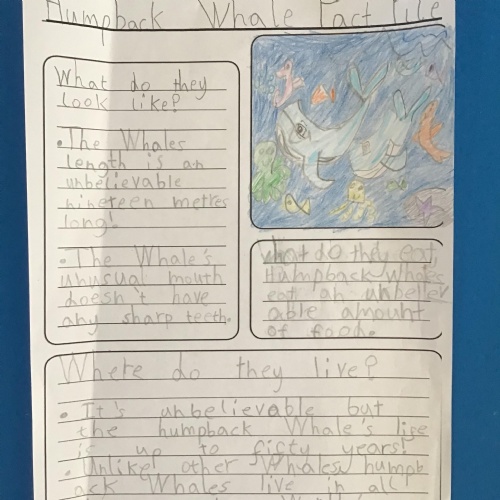 Humpback Whale Fact File
What do they
look like?
• The Whales
length is an
unbelievable
nineteen metres
long!
• The Whale's
unusual mouth
doesn't have
any sharp teeth.
What do they eat
Humpback Whales
eat an unbeliev
able amount
of food.
Where do they live?
• It's unbelievable but
the humpback Whale's life
is up to fifty years!
• Unlike other Whales, humpb
ack Whales live in all